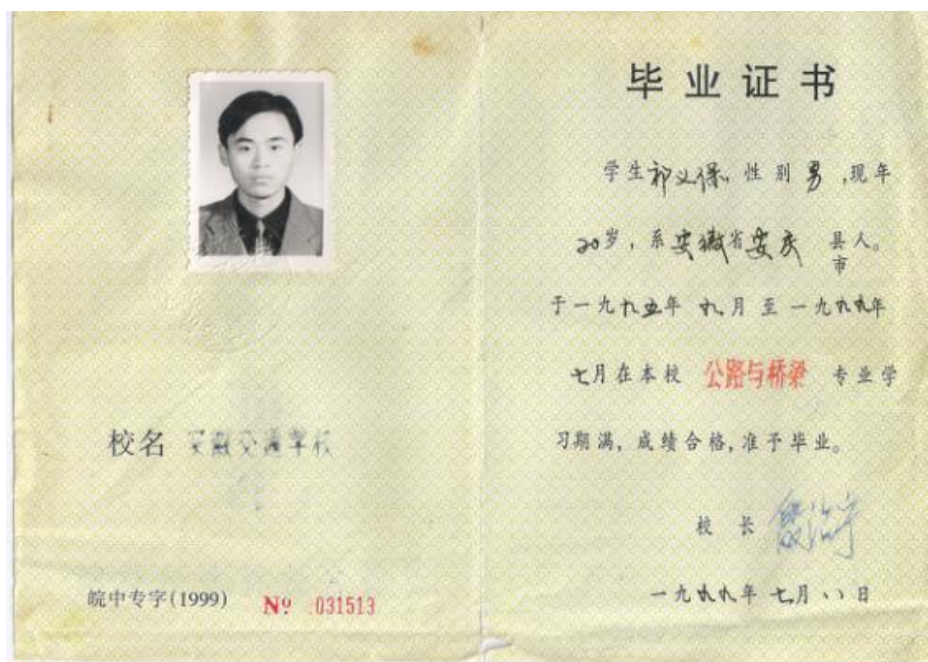 校名 安徽交通学校
皖中专字(1999) № 031513
毕业证书
学生祁义保,性别男,现年
20岁,系安徽省安庆县人。
市
于一九九五年九月至一九九九年
七月在本校 公路与桥梁 专业学
习期满,成绩合格,准予毕业。
校长
一九九九年七月八日